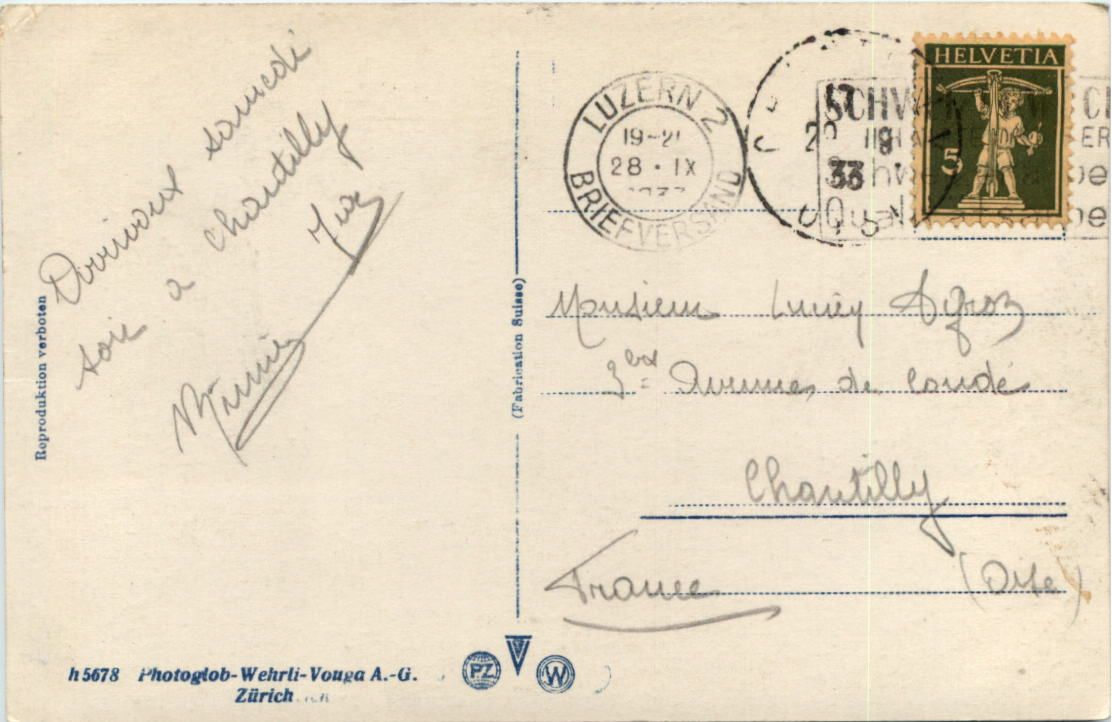 Arriverons samedi
soir a Chantilly
Reproduktion verboten
(Fabrication Suisse)
LUZERN 2
19-2
28 · IX
1933
BRIEFVERSAND
17
29 9
33
HELVETIA
5
Monsieur Lucien
3bis Avenue de Condé
Chantilly
(Oise)
France
h 5678 Photoglob-Wehrli-Vouga A.-G.
Zürich
PZ
W